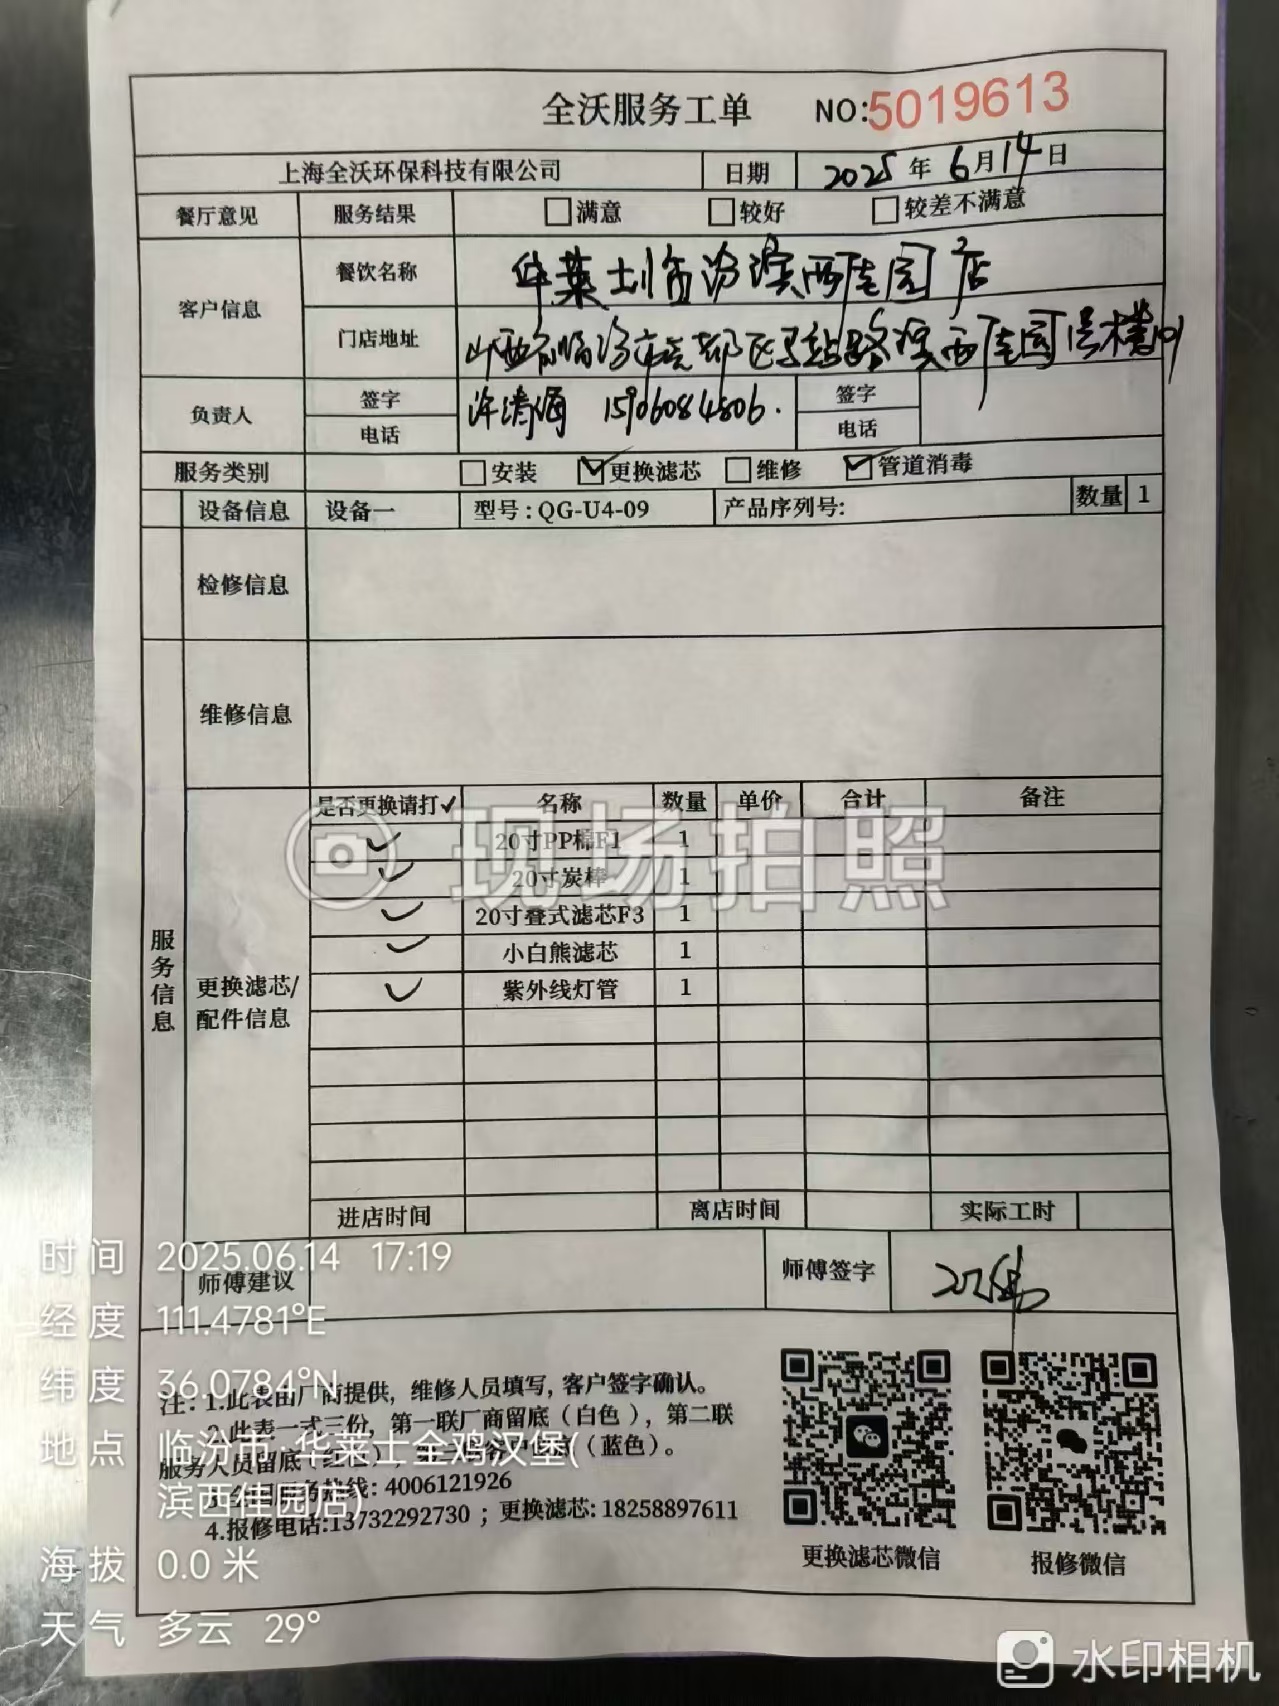 全沃服务工单 NO:5019613
上海全沃环保科技有限公司 日期 2025年6月14日
餐厅意见 服务结果 满意 较好 较差不满意
客户信息 餐饮名称 华莱士临汾滨西佳园店
门店地址 山西省临汾市尧都区 路滨西佳园 号楼
负责人 签字 许清海 15906084806. 签字
电话 电话
服务类别 安装 ✓更换滤芯 维修 ✓管道消毒
设备信息 设备一 型号:QG-U4-09 产品序列号: 数量 1
检修信息
维修信息
服务信息
更换滤芯/
配件信息
是否更换请打✓ 名称 数量 单价 合计 备注
✓ 20寸PP棉F1 1
✓ 20寸炭棒 1
✓ 20寸叠式滤芯F3 1
✓ 小白熊滤芯 1
✓ 紫外线灯管 1
现场拍照
进店时间 离店时间 实际工时
师傅建议 师傅签字
注: 1.此表由厂商提供, 维修人员填写, 客户签字确认。
2.此表一式三份, 第一联厂商留底 (白色), 第二联
服务人员留底 (蓝色)。
热线: 4006121926
4.报修电话:13732292730 ; 更换滤芯: 18258897611
更换滤芯微信 报修微信
时间 2025.06.14 17:19
经度 111.4781°E
纬度 36.0784°N
地点 临汾市·华莱士全鸡汉堡(
滨西佳园店)
海拔 0.0米
天气 多云 29°
水印相机